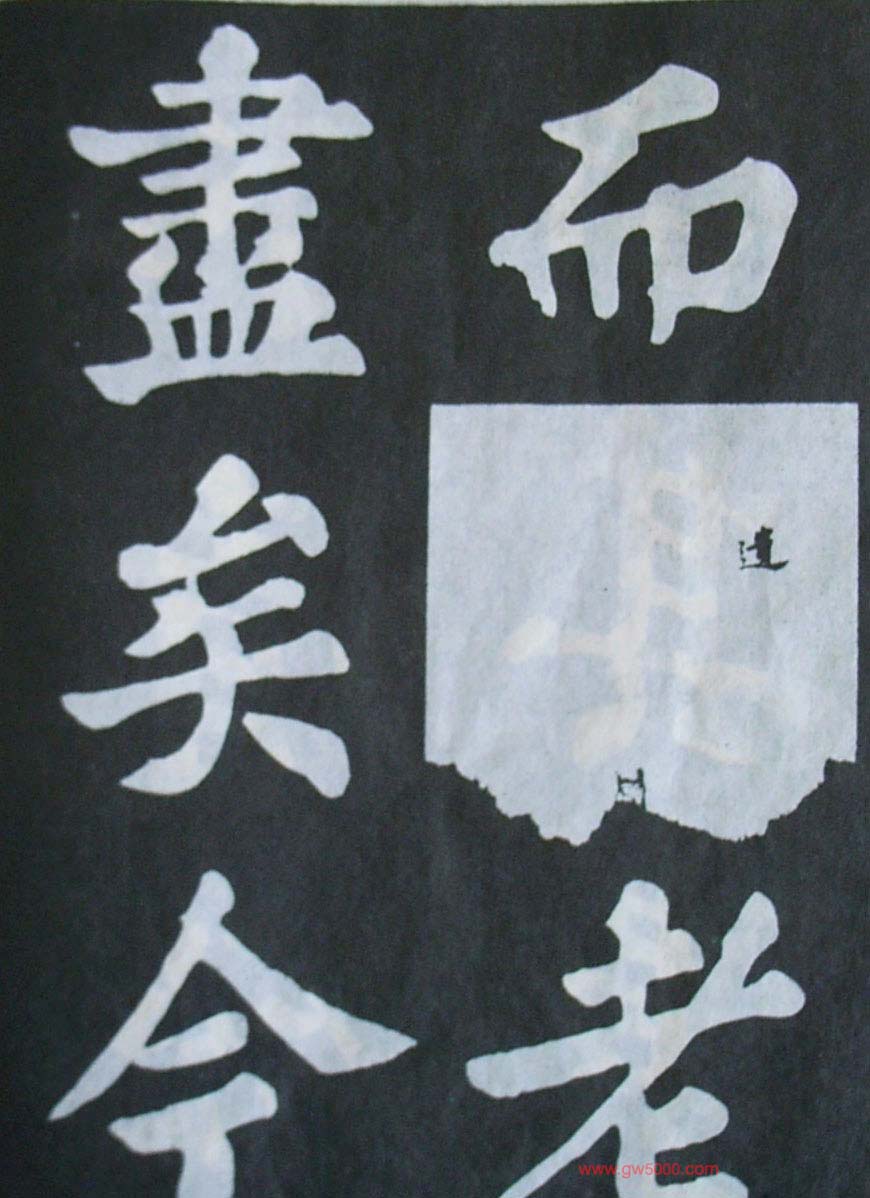 而
道
老
盡矣今
www.gw5000.com